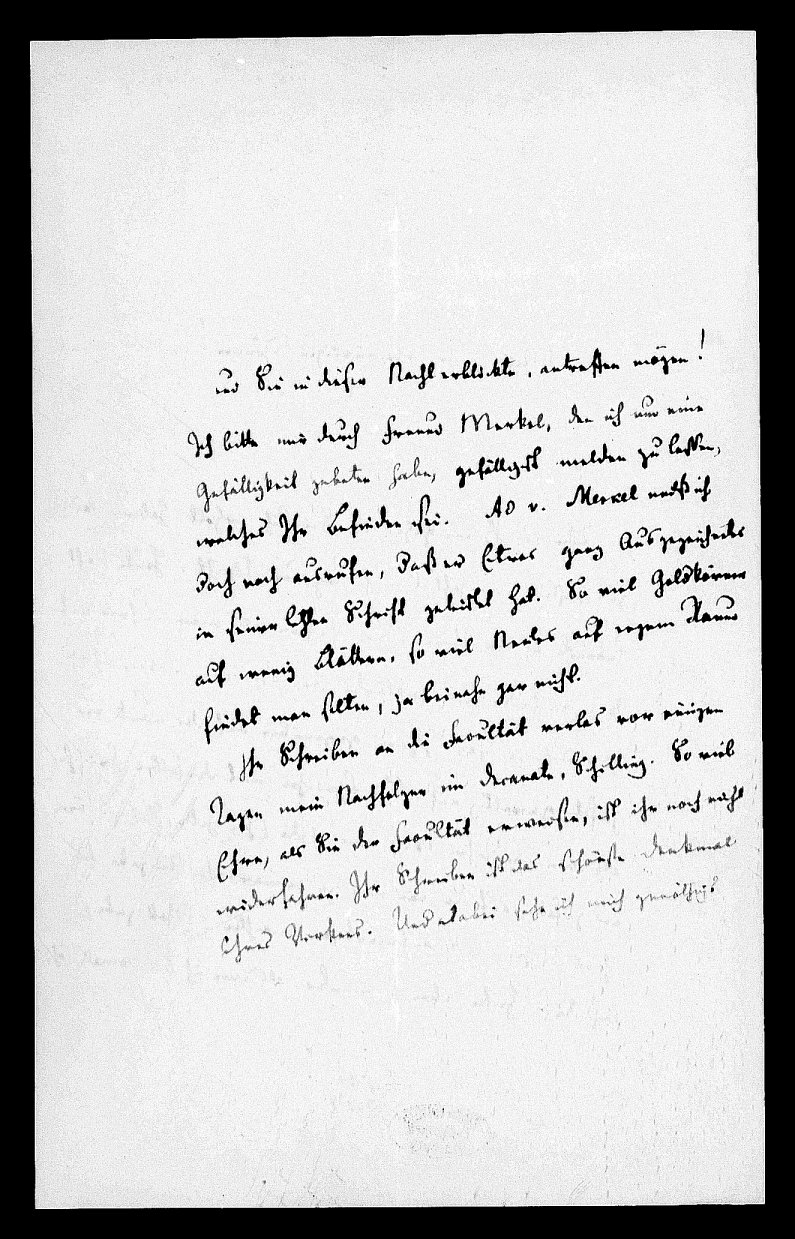 und Sie in dieser Nacht erblickte, antreffen mögen!
Ich bitte mir durch Freund Merkel, den ich um eine
Gefälligkeit gebeten habe, gefälligst melden zu lassen,
welches Ihr Befinden sei. Ad v. Merkel muß ich
doch noch ausrufen, daß er Etwas ganz Ausgezeichnetes
in seiner letzten Schrift geleistet hat. So viel Goldkörner
auf wenig Blättern, so viel Neues auf engem Raum
findet man selten, ja beinahe gar nicht.
Ihr Schreiben an die Facultät verlas vor einigen
Tagen mein Nachfolger im Decanate, Schilling. So viel
Ehre, als Sie der Facultät erweisen, ist ihr noch nicht
widerfahren. Ihr Schreiben ist das schönste Denkmal
Ihres Werkes. Und dabei sehe ich mich genöthigt